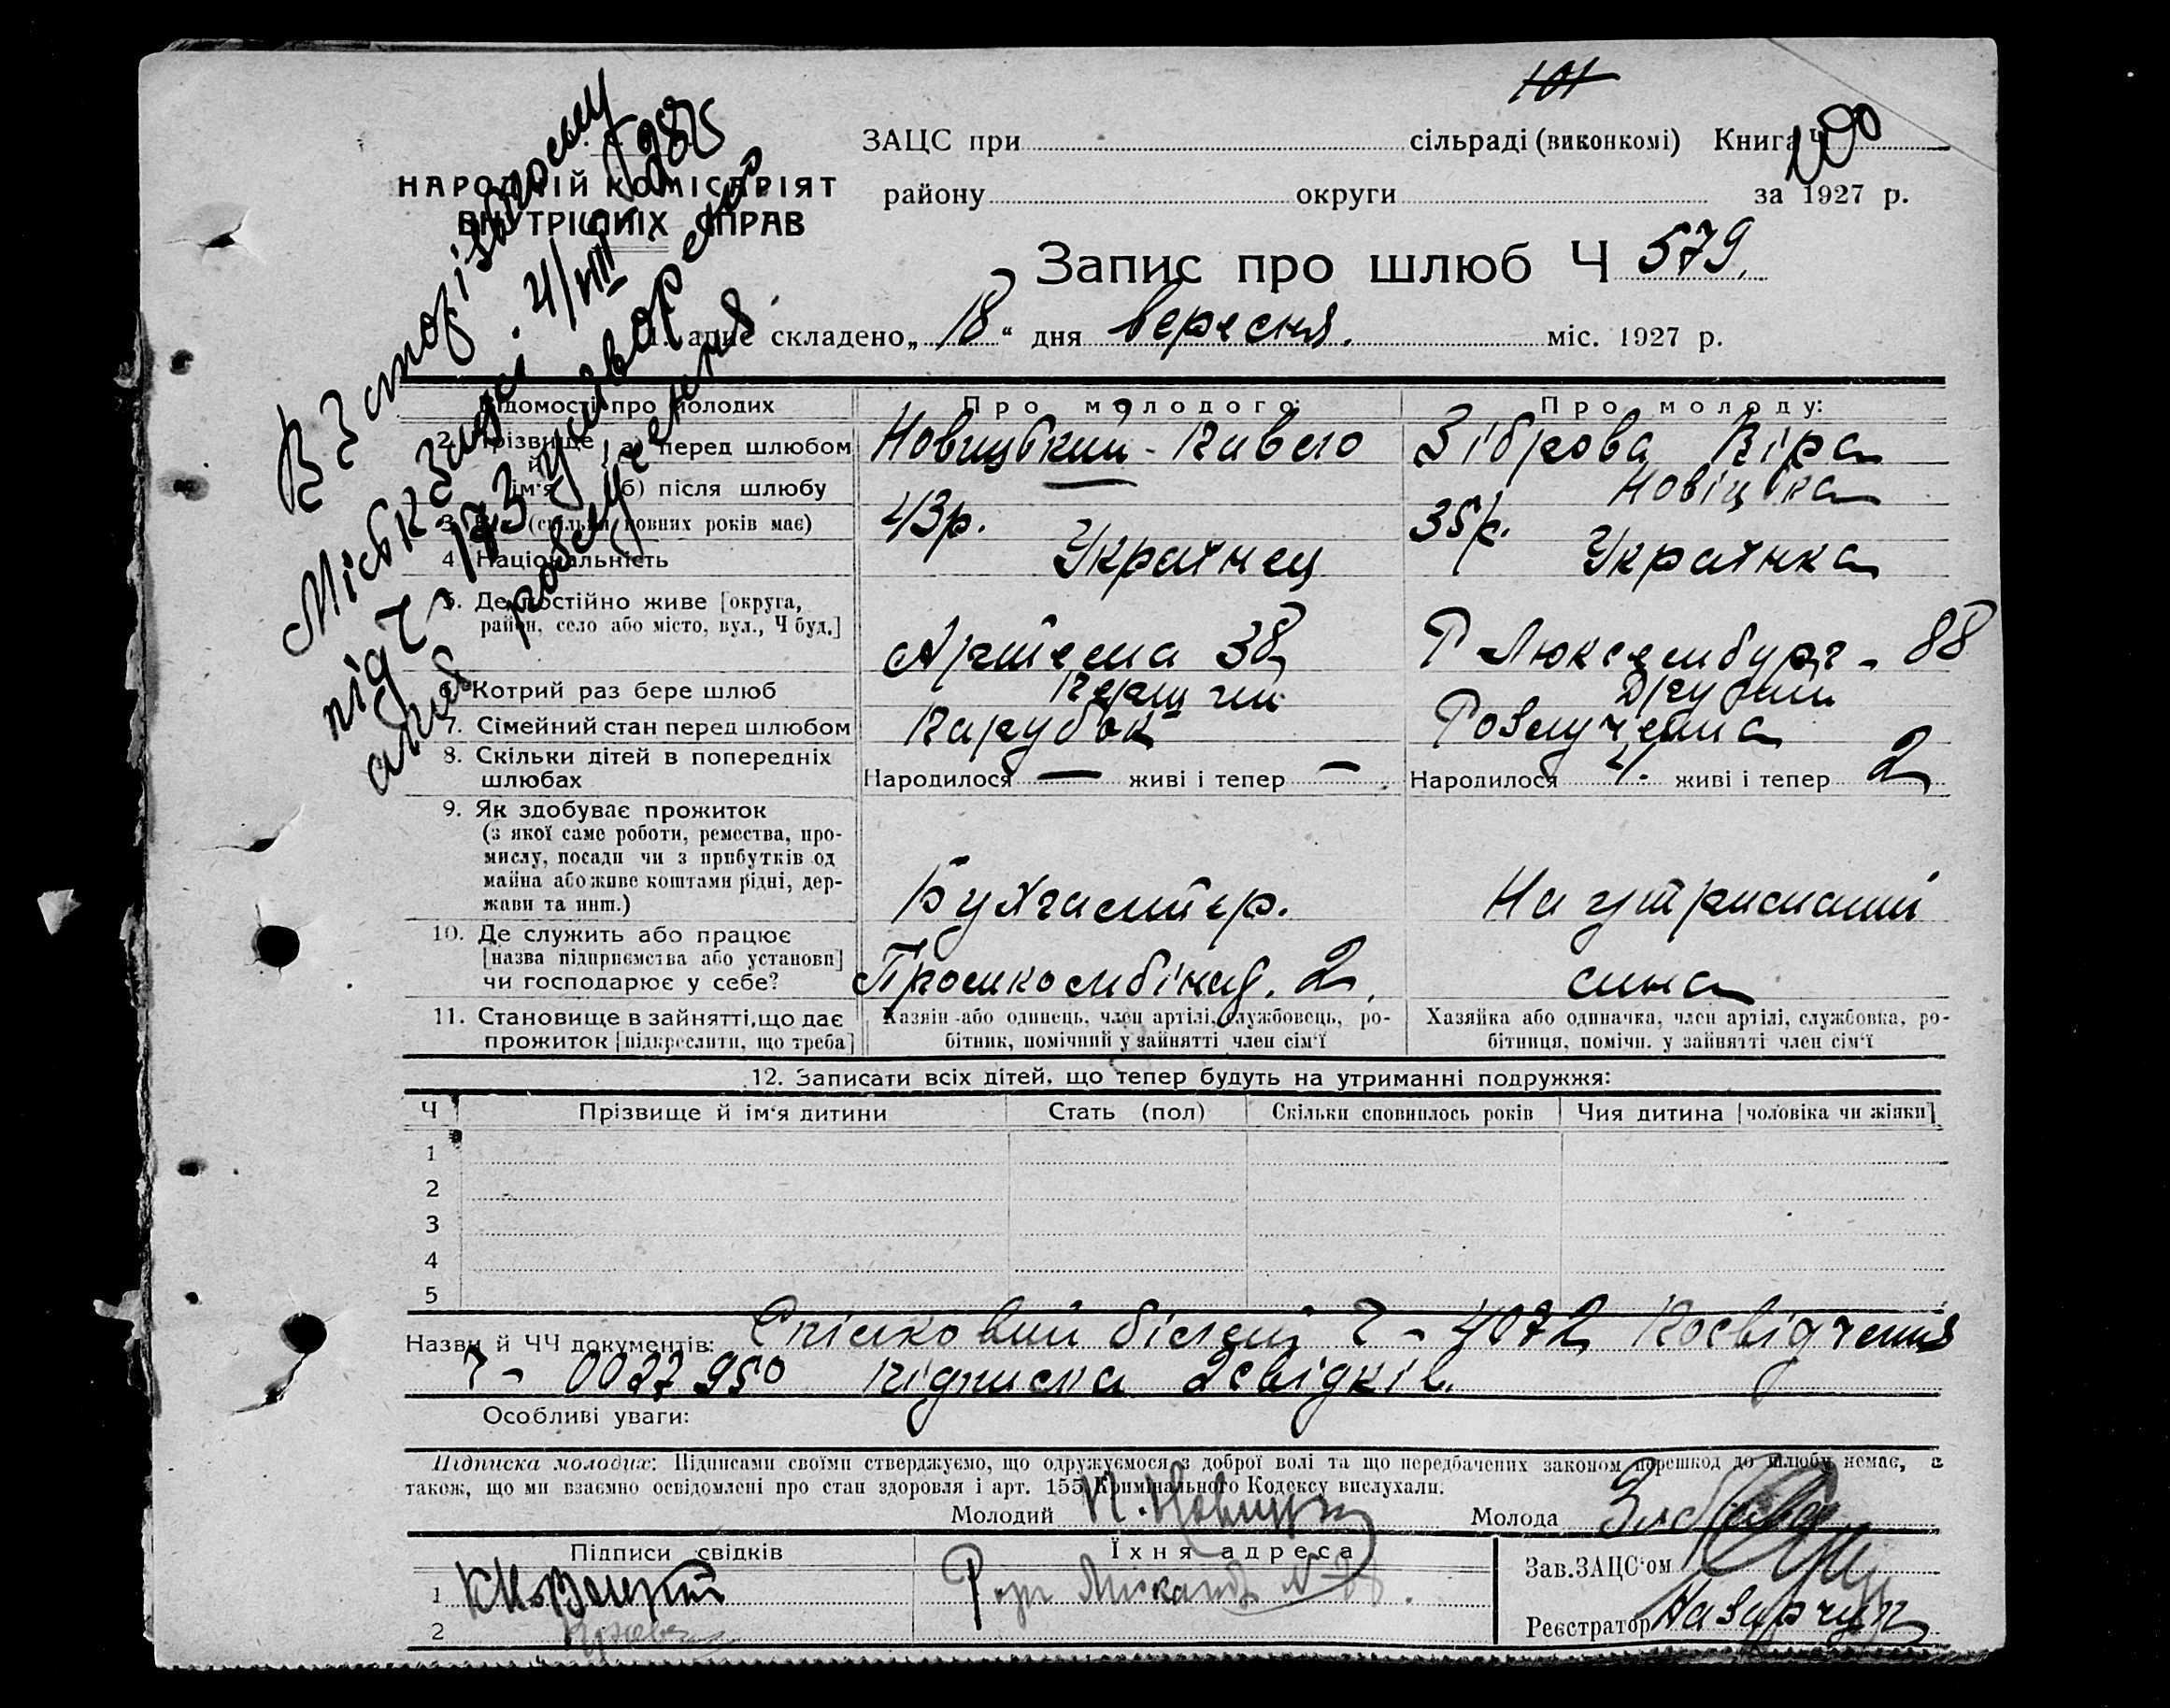 101
ЗАЦС при сільраді (виконкомі) Книга Ч 100
району округи за 1927 р.
НАРОДНІЙ КОМІСАРІЯТ
ВНУТРІШНІХ СПРАВ
Запис про шлюб Ч 579.
1. Запис складено „18“ дня вересня. міс. 1927 р.
В Запорізькому
Міськзагсі. 4/VIII
під ч-173 утворено
розлучення
Відомості про молодих
Про молодого:
Про молоду:
2. Прізвище й ім'я
а) перед шлюбом
Новицький - Павло
Зіброва Віра
б) після шлюбу
Новіцька
3. Вік (скільки повних років має)
43р.
35р.
4. Національність
Українец
Українка
5. Де постійно живе [округа,
район, село або місто, вул., Ч буд.]
Артема 38
Р Люксембург - 88
6. Котрий раз бере шлюб
Перший
Другий
7. Сімейний стан перед шлюбом
Парубок
Розлучена
8. Скільки дітей в попередніх
шлюбах
Народилося — живі і тепер —
Народилося 4. живі і тепер 2
9. Як здобуває прожиток
(з якої саме роботи, ремества, про-
мислу, посади чи з прибутків од
майна або живе коштами рідні, дер-
жави та инш.)
Бухгалтер.
На утриманні
10. Де служить або працює
[назва підприємства або установи]
чи господарює у себе?
Промкомбінад. 2.
сина
11. Становище в зайнятті, що дає
прожиток [підкреслити, що треба]
Хазяїн або одинець, член артілі, службовець, ро-
бітник, помічний у зайнятті член сім'ї
Хазяйка або одиначка, член артілі, службовка, ро-
бітниця, помічн. у зайнятті член сім'ї
12. Записати всіх дітей, що тепер будуть на утриманні подружжя:
Ч Прізвище й ім'я дитини Стать (пол) Скільки сповнилось років Чия дитина [чоловіка чи жінки]
1
2
3
4
5
Назви й ЧЧ документів: Спілковий білет Ч - 4072 Посвідчення
Ч - 0027950 підписка 2 свідків.
Особливі уваги:
Підписка молодих: Підписами своїми стверджуємо, що одружуємося з доброї волі та що передбачених законом перешкод до шлюбу немає, а
також, що ми взаємно освідомлені про стан здоровля і арт. 155 Кримінального Кодексу вислухали.
Молодий П. Новицьк
Молода
Підписи свідків
Їхня адреса
Зав. ЗАЦС'ом
1 К Новицкий
2
Реєстратор Назарчук